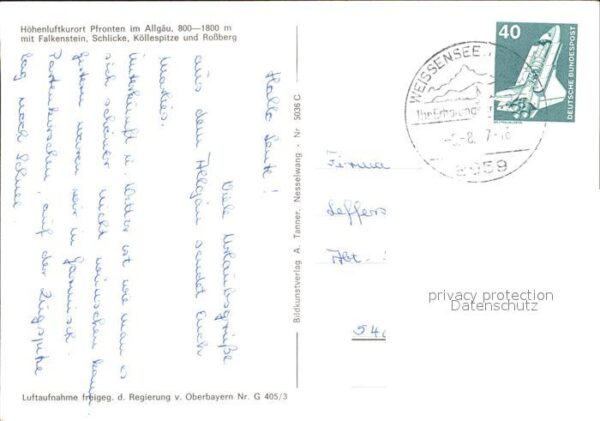 Höhenluftkurort Pfronten im Allgäu, 800—1800 m
mit Falkenstein, Schlicke, Köllespitze und Roßberg
Hallo Leute!
Viele Urlaubsgrüße
aus dem Allgäu sendet Euch
Unterkunft u. Wetter ist wie man es
sich schöner nicht wünschen kann.
Gestern waren wir in Garmisch
Partenkirschen, auf der Zugspitze
lag noch Schnee.
Luftaufnahme freigeg. d. Regierung v. Oberbayern Nr. G 405/3
Bildkunstverlag A. Tanner, Nesselwang · Nr 5036 C
WEISSENSEE
8959
40
DEUTSCHE BUNDESPOST
Firma
Leffers
Abt.
privacy protection
Datenschutz